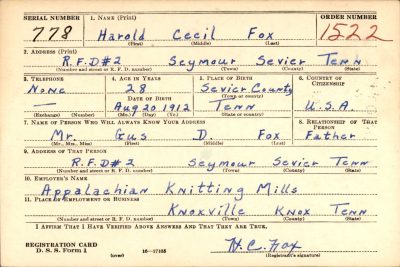 SERIAL NUMBER 1. NAME (Print) ORDER NUMBER
778 Harold Cecil Fox 1522
(First) (Middle) (Last)
2. ADDRESS (Print)
R.F.D#2 Seymour Sevier Tenn
(Number and street or R. F. D. number) (Town) (County) (State)
3. TELEPHONE 4. AGE IN YEARS 5. PLACE OF BIRTH 6. COUNTRY OF CITIZENSHIP
None 28 Sevier County
DATE OF BIRTH (Town or county)
— Aug 20 1912 Tenn U.S.A.
(Exchange) (Number) (Mo.) (Day) (Yr.) (State or country)
7. NAME OF PERSON WHO WILL ALWAYS KNOW YOUR ADDRESS 8. RELATIONSHIP OF THAT PERSON
Mr. Gus D. Fox Father
(Mr., Mrs., Miss) (First) (Middle) (Last)
9. ADDRESS OF THAT PERSON
R.F.D#2 Seymour Sevier Tenn
(Number and street or R. F. D. number) (Town) (County) (State)
10. EMPLOYER'S NAME
Appalachian Knitting Mills
11. PLACE OF EMPLOYMENT OR BUSINESS
Knoxville Knox Tenn
(Number and street or R. F. D. number) (Town) (County) (State)
I AFFIRM THAT I HAVE VERIFIED ABOVE ANSWERS AND THAT THEY ARE TRUE.
REGISTRATION CARD
D. S. S. Form 1 (over) 16—17105 H.C. Fox
(Registrant's signature)